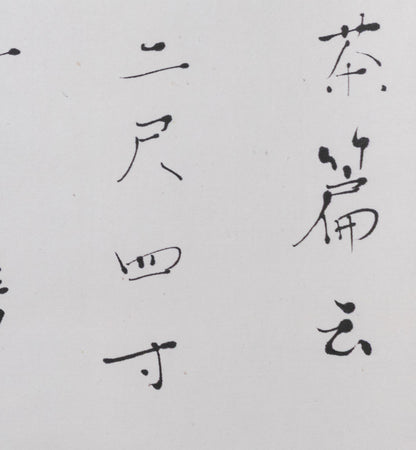 茶篇云
二尺四寸